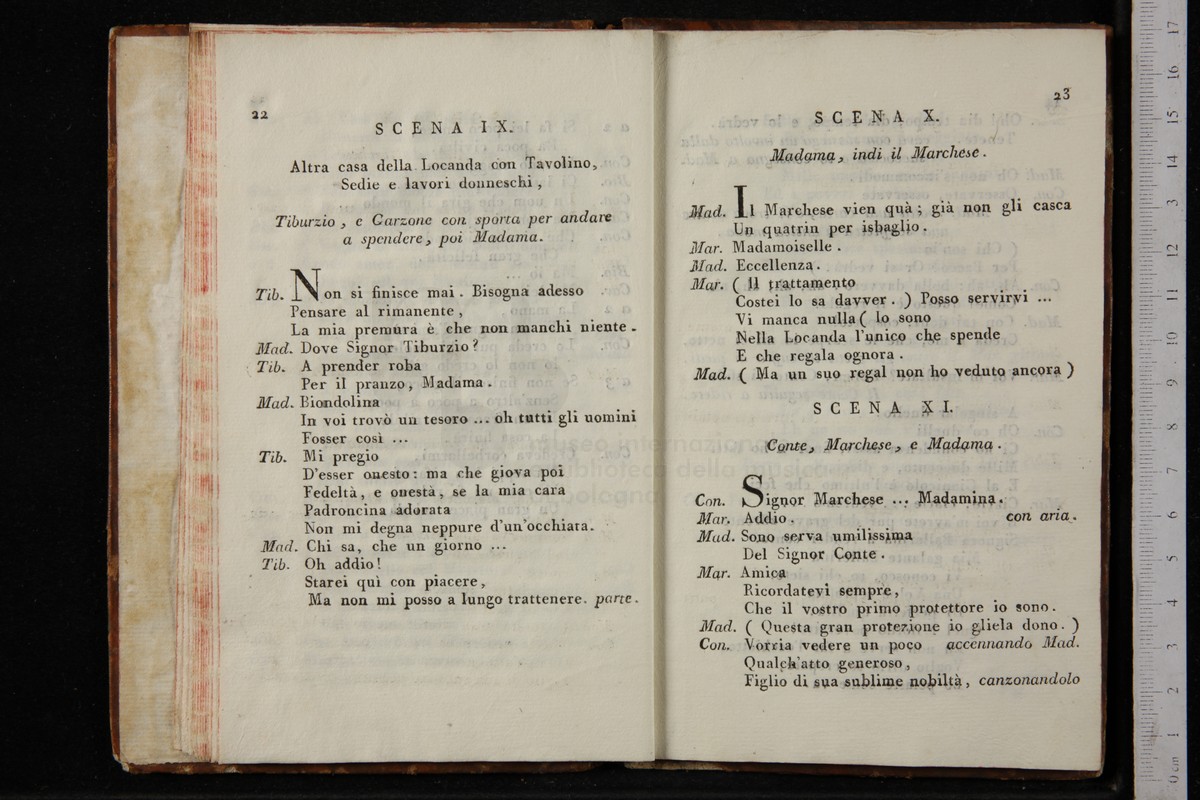 22
SCENA IX.
Altra casa della Locanda con Tavolino,
Sedie e lavori donneschi,
Tiburzio, e Garzone con sporta per andare
a spendere, poi Madama.
Tib. Non si finisce mai. Bisogna adesso
Pensare al rimanente,
La mia premura è che non manchi niente.
Mad. Dove Signor Tiburzio?
Tib. A prender roba
Per il pranzo, Madama.
Mad. Biondolina
In voi trovò un tesoro ... oh tutti gli uomini
Fosser così ...
Tib. Mi pregio
D'esser onesto: ma che giova poi
Fedeltà, e onestà, se la mia cara
Padroncina adorata
Non mi degna neppure d'un'occhiata.
Mad. Chi sa, che un giorno ...
Tib. Oh addio!
Starei quì con piacere,
Ma non mi posso a lungo trattenere. parte.
23
SCENA X.
Madama, indi il Marchese.
Mad. Il Marchese vien quà; già non gli casca
Un quatrin per isbaglio.
Mar. Madamoiselle.
Mad. Eccellenza.
Mar. ( Il trattamento
Costei lo sa davver. ) Posso servirvi ...
Vi manca nulla ( Io sono
Nella Locanda l'unico che spende
E che regala ognora.
Mad. ( Ma un suo regal non ho veduto ancora )
SCENA XI.
Conte, Marchese, e Madama.
Con. Signor Marchese ... Madamina.
Mar. Addio. con aria.
Mad. Sono serva umilissima
Del Signor Conte.
Mar. Amica
Ricordatevi sempre,
Che il vostro primo protettore io sono.
Mad. ( Questa gran protezione io gliela dono. )
Con. Vorria vedere un poco accennando Mad.
Qualch'atto generoso,
Figlio di sua sublime nobiltà, canzonandolo
museo internazionale
e biblioteca della musica
di bologna
0 cm 1 2 3 4 5 6 7 8 9 10 11 12 13 14 15 16 17